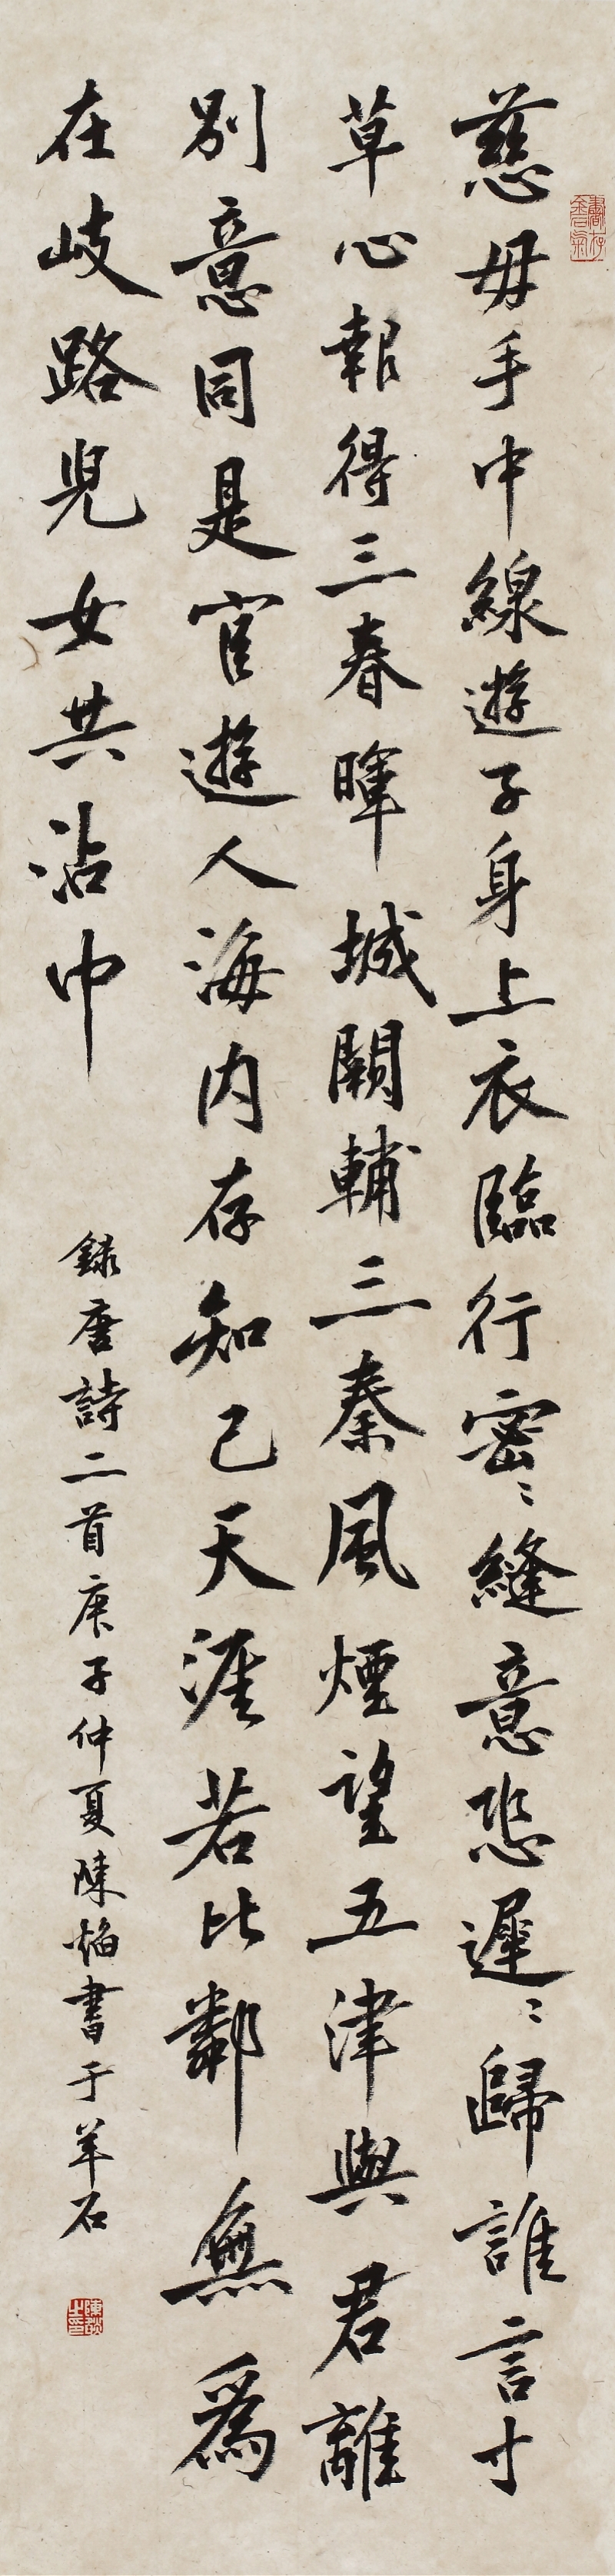 書存金石氣
慈母手中線遊子身上衣臨行密〻縫意恐遲〻歸誰言寸
草心報得三春暉城闕輔三秦風煙望五津與君離
別意同是宦遊人海内存知己天涯若比鄰無爲
在岐路兒女共沾巾
録唐詩二首庚子仲夏陳焰書于羊石